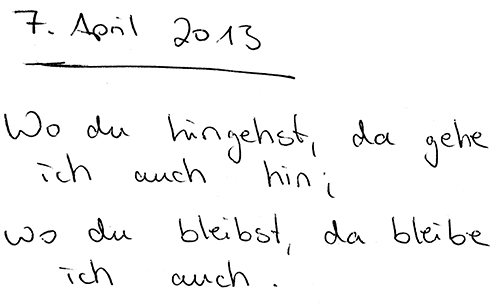 7. April 2013
Wo du hingehst, da gehe
ich auch hin;
wo du bleibst, da bleibe
ich auch.